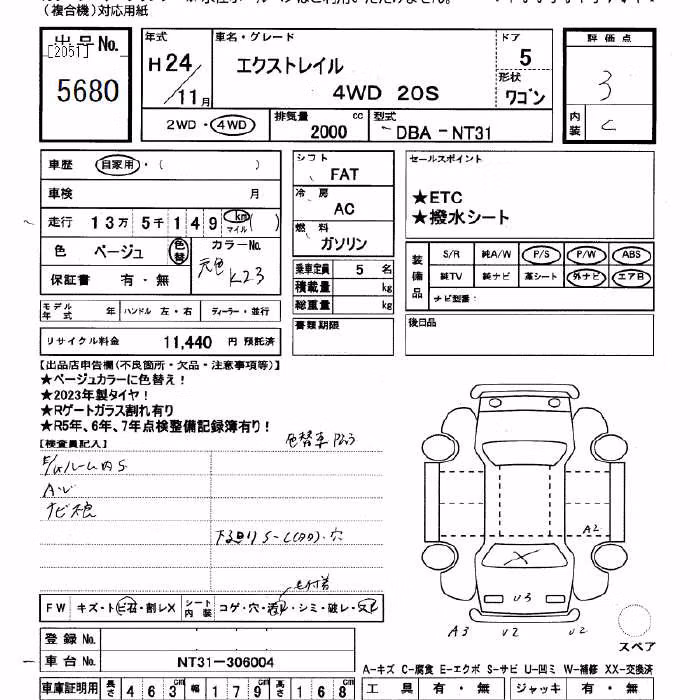 (複合機)対応用紙
出品No.
[2051]
5680
年式
H24/11月
車名・グレード
エクストレイル
4WD 20S
ドア
5
形状
ワゴン
評価点
3
内装
C
2WD・4WD
排気量
2000cc
型式
DBA-NT31
車歴 自家用・( )
車検 月
走行 13万 5千 149 km マイル ( )
色 ベージュ 色替 カラーNo.
元色 K23
保証書 有・無
モデル年式 年 ハンドル 左・右 ディーラー・並行
リサイクル料金 11,440 円 預託済
シフト
FAT
冷房
AC
燃料
ガソリン
乗車定員 5 名
積載量 kg
総重量 kg
書類期限
セールスポイント
★ETC
★撥水シート
装備品
S/R 純A/W P/S P/W ABS
純TV 純ナビ 革シート 外ナビ エアB
ナビ型番:
後日品
[出品店申告欄(不良箇所・欠品・注意事項等)]
★ベージュカラーに色替え!
★2023年製タイヤ!
★Rゲートガラス割れ有り
★R5年、6年、7年点検整備記録簿有り!
[検査員記入]
色替車
ルーム内S
ナビ不良
下廻りS-C
穴
FW キズ・トビ石・割レX
シート内装 コゲ・穴・汚レ・シミ・破レ・スレ
登録No.
車台No. NT31-306004
車庫証明用 長さ 463cm 幅 179cm 高さ 168cm
A2
X
U3
A3 U2 U2
スペア
A-キズ C-腐食 E-エクボ S-サビ U-凹ミ W-補修 XX-交換済
工具 有・無 ジャッキ 有・無